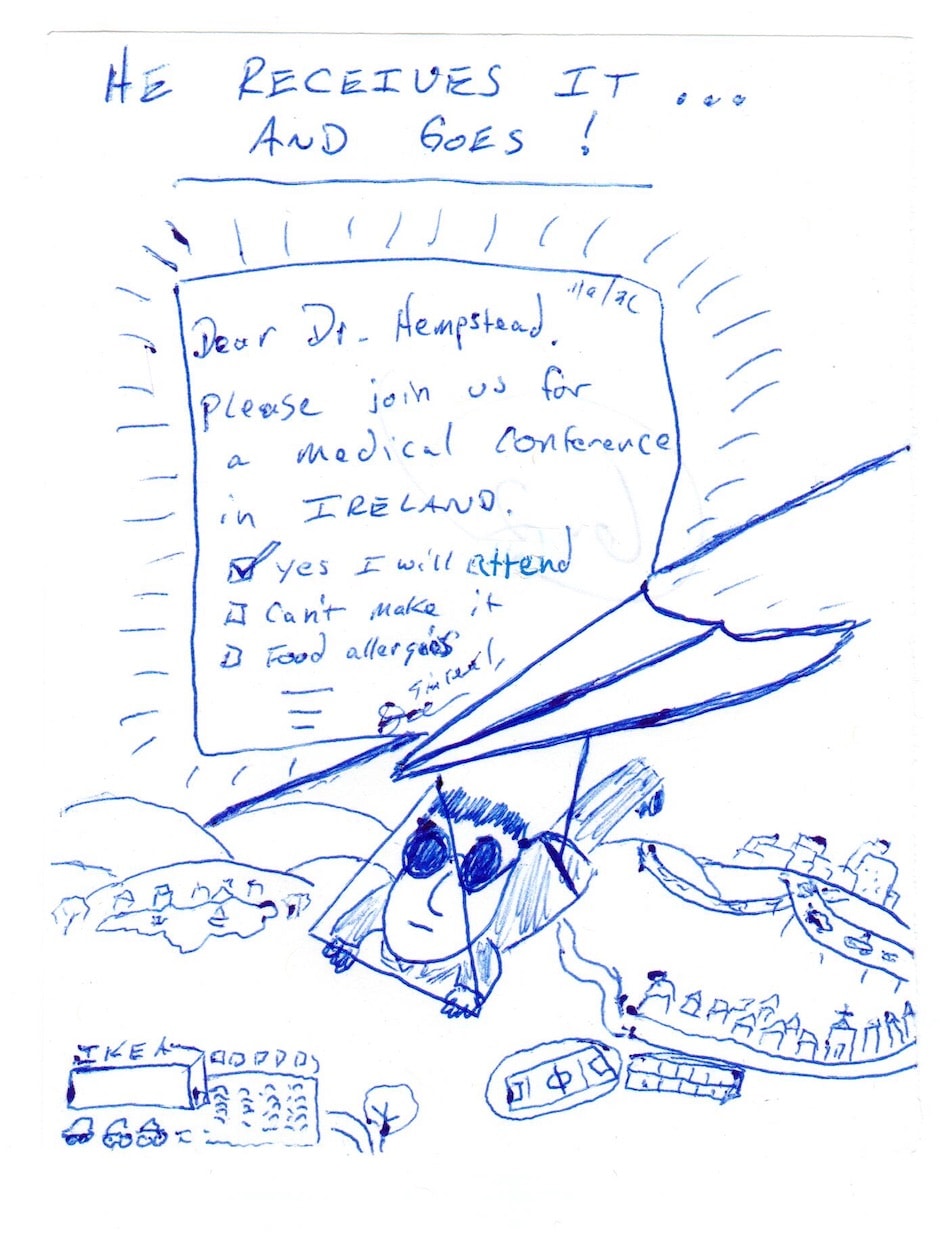 HE RECEIVES IT ...
AND GOES!
Dear Dr. Hempstead.
Please join us for
a medical conference
in IRELAND.
yes I will attend
Can't make it
Food allergies
IKEA